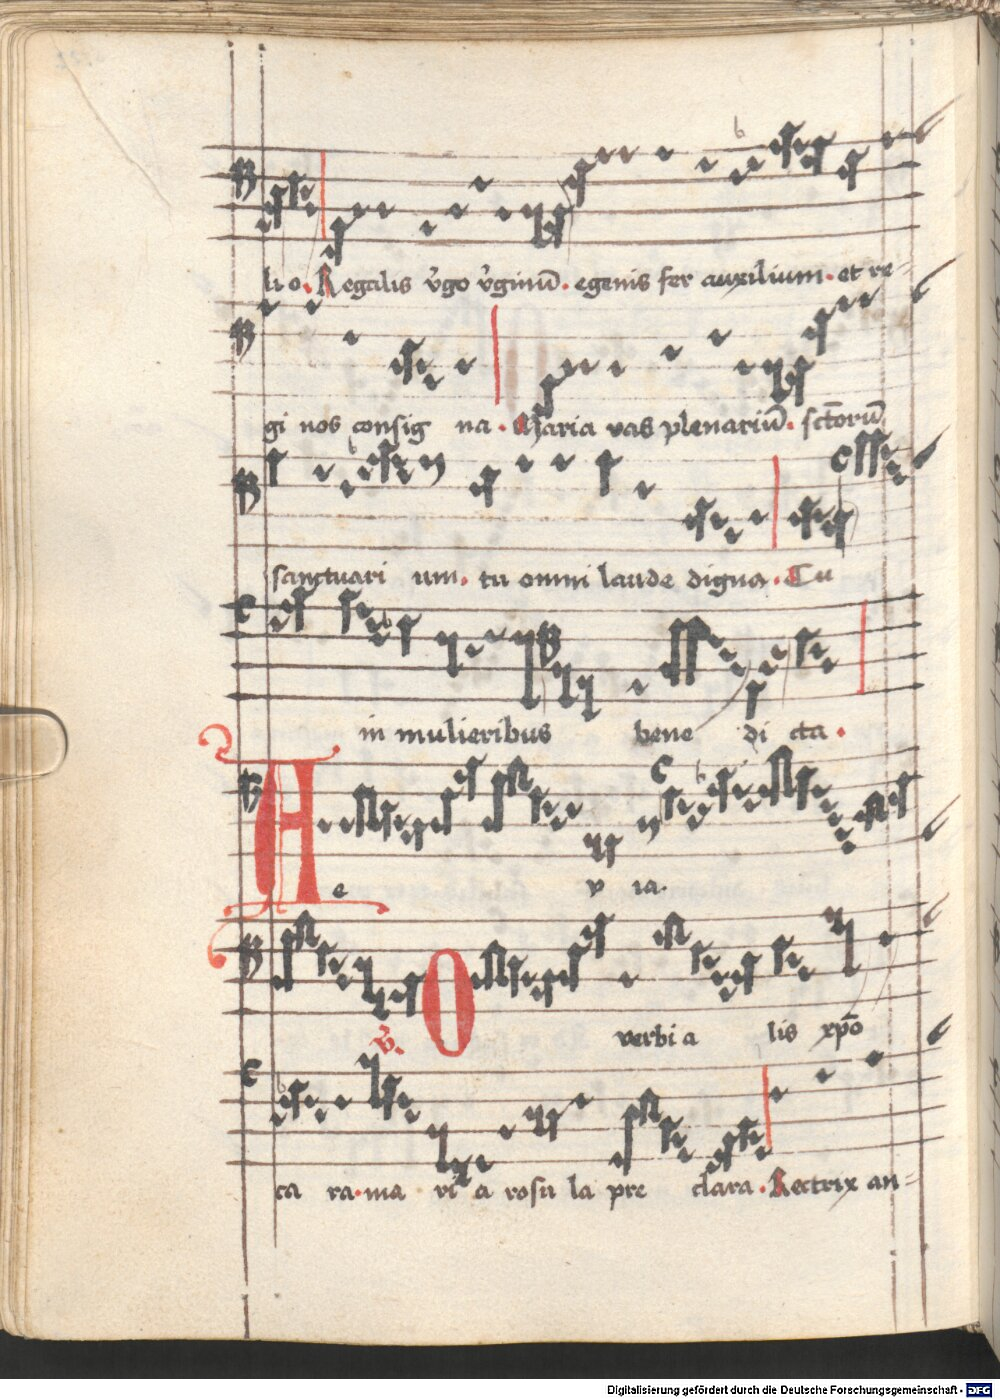 li o. Regalis v̓go v̓ginū. egenis fer auxilium. et re-
gi nos consig na. Maria vas plenariū. sctorū
sanctuari um. tu omni laude digna. Tu
in mulieribus bene di cta.
A e v ia.
O verbi a lis xpō
ca ra. ma ri a rosu la pre clara. Rectrix an-
Digitalisierung gefördert durch die Deutsche Forschungsgemeinschaft - DFG